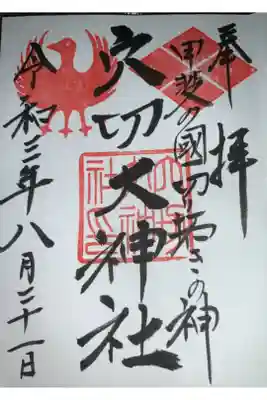 奉拝
甲斐の國切り拓きの神
穴切大神社
令和三年八月二十一日